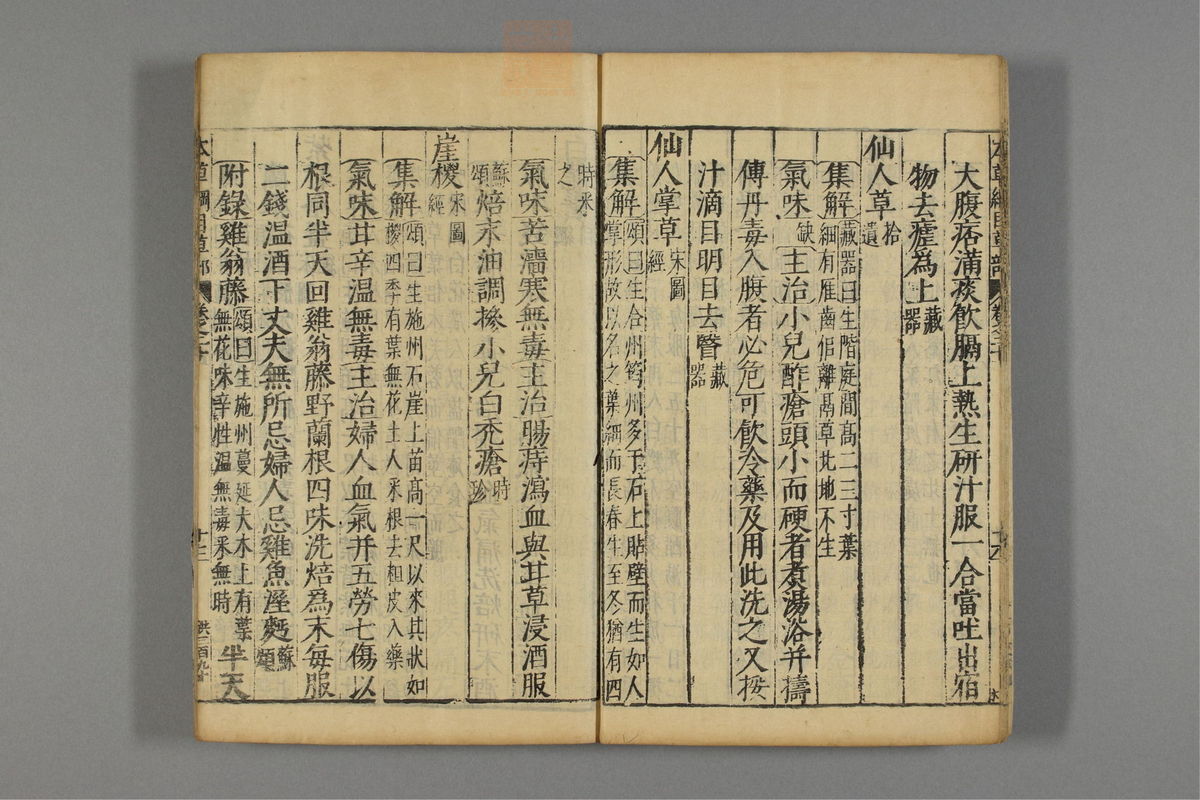 大腹痞滿痰飲膈上熱生研汁服一合當吐出宿
物去瘧為上藏器
仙人草拾遺
集解藏器曰生階庭間高二三寸葉
細有雁齒似離鬲草北地不生
氣味缺主治小兒酢瘡頭小而硬者煮湯浴并擣
傅丹毒入腹者必危可飲冷藥及用此洗之又挼
汁滴目明目去瞖藏器
仙人掌草宋圖經
集解頌曰生合州筠州多于石上貼壁而生如人
掌形故以名之葉細而長春生至冬猶有四
時采之
氣味苦濇寒無毒主治腸痔瀉血與甘草浸酒服
蘇頌焙末油調摻小兒白禿瘡時珍
崖椶宋圖經
集解頌曰生施州石崖上苗高一尺以來其狀如
椶四季有葉無花土人采根去粗皮入藥
氣味甘辛溫無毒主治婦人血氣并五勞七傷以
根同半天回雞翁藤野蘭根四味洗焙為末每服
二錢溫酒下丈夫無所忌婦人忌雞魚溼麪蘇頌
附錄雞翁藤頌曰生施州蔓延大木上有葉
無花味辛性溫無毒采無時半天
本草綱目草部 卷之二十 十二